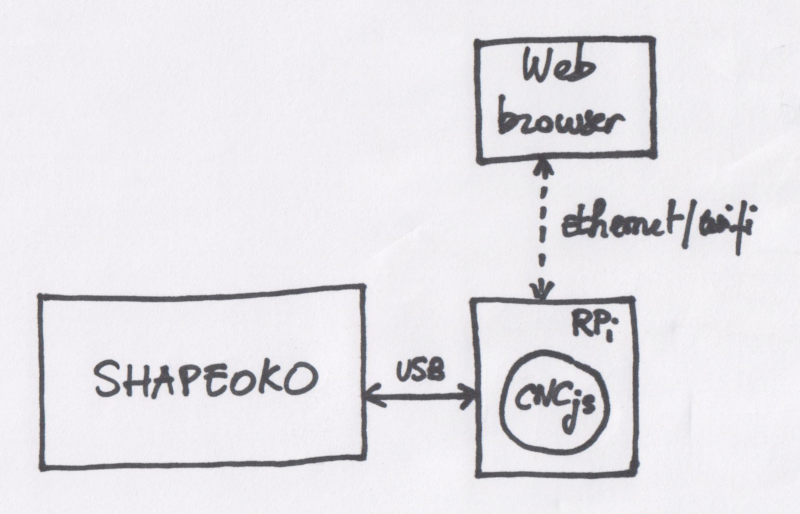 Web
browser
ethernet/wifi
RPi
SHAPEOKO
USB
CNCjs